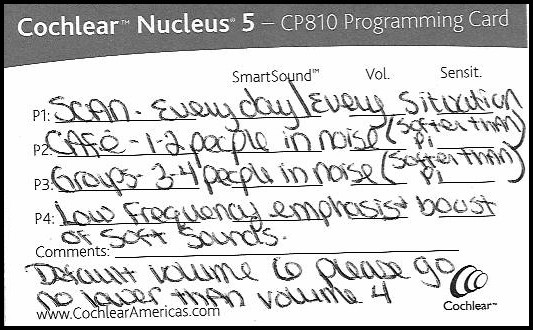 Cochlear™ Nucleus® 5 – CP810 Programming Card
SmartSound™ Vol. Sensit.
P1: SCAN - Everyday/Every Situation
P2: CAfé - 1-2 people in noise (softer than P1)
P3: Groups - 3-4 people in noise (softer than P1)
P4: Low frequency emphasis + boost
of soft sounds.
Comments:
Default volume 6 please go
no lower than volume 4
www.CochlearAmericas.com
Cochlear™